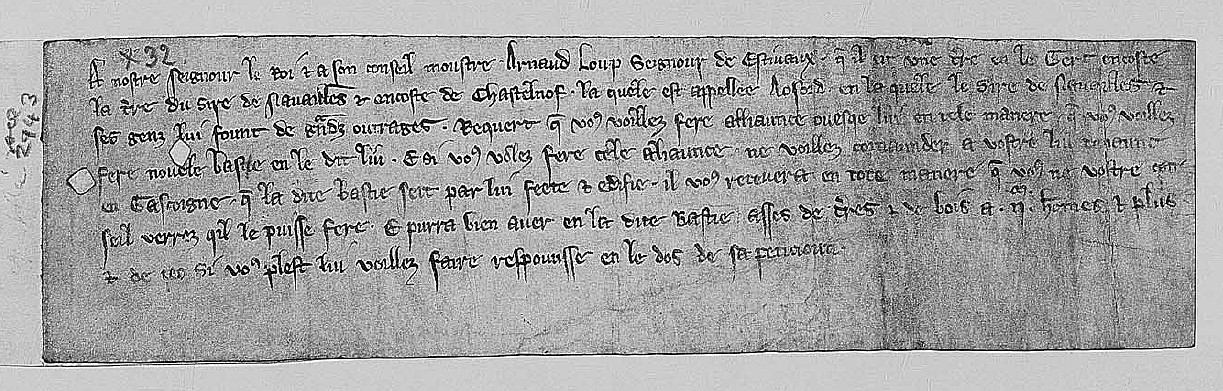 X32
A nostre seignour le Roi & a son conseil monstre Arnaud Loup Seignour de Estivaux q̄ il ne une t̄re en le encoste
la t̄re du sire de Navailles & encoste de Chastelnof la quele est appellee en la quele le Sire de Navailles &
ses genz lui fount de g̃ndz outrages Requert q̄ voꝰ voillez fere alliaunce ovesqe lui en tele manere q̄ voꝰ voillez
fere novele bastie en le dit liu E si voꝰ volez fere cele alliaunce ne voillez comaunder a vostre liu tenaunt
en Gascoigne q̄ la dite bastie seit par lui feete & edifie il voꝰ recevera en tote manere q̄ voꝰ ne vostre con
seil verrez qil le puisse fere E purra bien aver en la dite Bastie asses de t̄res & de bois a .ij. homes & plus
& de ceo si voꝰ plest lui voillez faire respounse en le dos de sa peticioun
2743